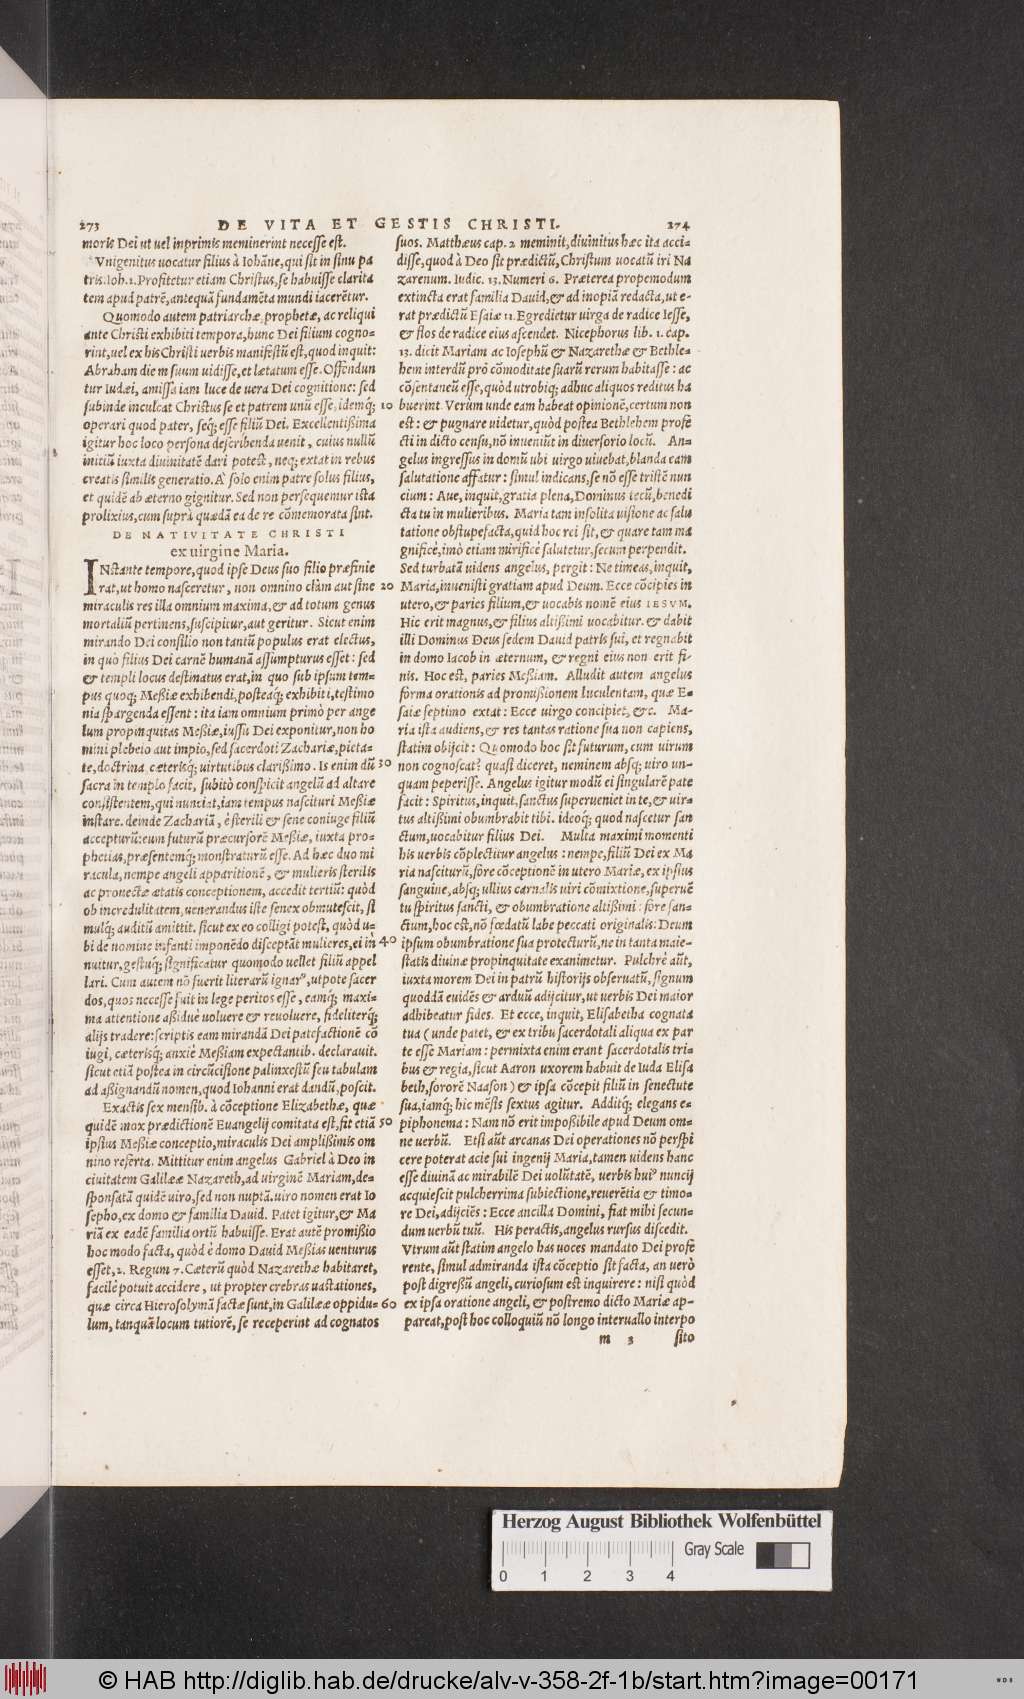 273 DE VITA ET GESTIS CHRISTI. 274
moris Dei ut uel inprimis meminerint necesse est.
Vnigenitus uocatur filius à Iohãne, qui sit in sinu pa
tris. Ioh. 1. Profitetur etiam Christus, se habuisse clarita
tem apud patrẽ, antequã fundamẽta mundi iacerẽtur.
Quomodo autem patriarchæ, prophetæ, ac reliqui
ante Christi exhibiti tempora, hunc Dei filium cogno=
rint, uel ex his Christi uerbis manifestũ est, quod inquit:
Abraham diem suum uidisse, et lætatum esse. Offendun
tur Iudæi, amissa iam luce de uera Dei cognitione: sed
subinde inculcat Christus se et patrem unũ esse, idemq́;
operari quod pater, seq́; esse filiũ Dei. Excellentißima
igitur hoc loco persona describenda uenit, cuius nullũ
initiũ iuxta diuinitatẽ dari potest, neq; extat in rebus
creatis similis generatio. A' solo enim patre solus filius,
et quidẽ ab æterno gignitur. Sed non persequemur ista
prolixius, cum suprà quædã ea de re cõmemorata sint.
DE NATIVITATE CHRISTI
ex uirgine Maria.
INstante tempore, quod ipse Deus suo filio præfinie
rat, ut homo nasceretur, non omnino clàm aut sine
miraculis res illa omnium maxima, & ad totum genus
mortaliũ pertinens, suscipitur, aut geritur. Sicut enim
mirando Dei consilio non tantũ populus erat electus,
in quo filius Dei carnẽ humanã assumpturus esset: sed
& templi locus destinatus erat, in quo sub ipsum tem=
pus quoq; Meßiæ exhibendi, posteaq́; exhibiti, testimo
nia spargenda essent: ita iam omnium primò per ange
lum propinquitas Meßiæ, iussu Dei exponitur, non ho
mini plebeio aut impio, sed sacerdoti Zachariæ, pieta=
te, doctrina, cæterisq́; uirtutibus clarißimo. Is enim dũ
sacra in templo facit, subitò conspicit angelũ ad altare
consistentem, qui nunciat, iam tempus nascituri Meßiæ
instare. deinde Zachariã, è sterili & sene coniuge filiũ
accepturũ: eum futurũ præcursorẽ Meßiæ, iuxta pro=
phetias, præsentemq́; monstraturũ esse. Ad hæc duo mi
racula, nempe angeli apparitionẽ, & mulieris sterilis
ac prouectæ ætatis conceptionem, accedit tertiũ: quòd
ob incredulitatem, uenerandus iste senex obmutescit, si
mulq́; auditũ amittit. sicut ex eo colligi potest, quòd u=
bi de nomine infanti imponẽdo disceptãt mulieres, ei in
nuitur, gestuq́; significatur quomodo uellet filiũ appel
lari. Cum autem nõ fuerit literarũ ignarꝰ, utpote sacer
dos, quos necesse fuit in lege peritos esse, eamq́; maxi=
ma attentione aßiduè uoluere & reuoluere, fideliterq́;
alijs tradere: scriptis eam mirandã Dei patefactionẽ cõ
iugi, cæterisq́; anxiè Meßiam expectantib. declarauit.
sicut etiã postea in circũcisione palinxestũ seu tabulam
ad aßignandũ nomen, quod Iohanni erat dandũ, poscit.
Exactis sex mensib. à cõceptione Elizabethæ, quæ
quidẽ mox prædictionẽ Euangelij comitata est, fit etiã
ipsius Meßiæ conceptio, miraculis Dei amplißimis om
nino referta. Mittitur enim angelus Gabriel à Deo in
ciuitatem Galilææ Nazareth, ad uirginẽ Mariam, de=
sponsatã quidẽ uiro, sed non nuptã. uiro nomen erat Io
sepho, ex domo & familia Dauid. Patet igitur, & Ma
riã ex eadẽ familia ortũ habuisse. Erat autẽ promißio
hoc modo facta, quòd è domo Dauid Meßias uenturus
esset, 2. Regum 7. Cæterũ quòd Nazarethæ habitaret,
facilè potuit accidere, ut propter crebras uastationes,
quæ circa Hierosolymã factæ sunt, in Galilææ oppidu=
lum, tanquã locum tutiorẽ, se receperint ad cognatos
10
20
30
40
50
60
suos. Matthæus cap. 2 meminit, diuinitus hæc ita acci=
disse, quod à Deo sit prædictũ, Christum uocatũ iri Na
zarenum. Iudic. 13. Numeri 6. Præterea propemodum
extincta erat familia Dauid, & ad inopiã redacta, ut e=
rat prædictũ Esaiæ 11. Egredietur uirga de radice Iesse,
& flos de radice eius ascendet. Nicephorus lib. 1. cap.
13. dicit Mariam ac Iosephũ & Nazarethæ & Bethle=
hem interdũ prò cõmoditate suarũ rerum habitasse: ac
cõsentaneũ esse, quòd utrobiq; adhuc aliquos reditus ha
buerint. Verùm unde eam habeat opinionẽ, certum non
est: & pugnare uidetur, quòd postea Bethlehem profe
cti in dicto censu, nõ inueniũt in diuersorio locũ. An=
gelus ingressus in domũ ubi uirgo uiuebat, blanda eam
salutatione affatur: simul indicans, se nõ esse tristẽ nun
cium: Aue, inquit, gratia plena, Dominus tecũ, benedi
cta tu in mulieribus. Maria tam insolita uisione ac salu
tatione obstupefacta, quid hoc rei sit, & quare tam ma
gnificè, imò etiam mirificè salutetur, secum perpendit.
Sed turbatã uidens angelus, pergit: Ne timeas, inquit,
Maria, inuenisti gratiam apud Deum. Ecce cõcipies in
utero, & paries filium, & uocabis nomẽ eius IESVM.
Hic erit magnus, & filius altißimi uocabitur. & dabit
illi Dominus Deus sedem Dauid patris sui, et regnabit
in domo Iacob in æternum, & regni eius non erit fi=
nis. Hoc est, paries Meßiam. Alludit autem angelus
forma orationis ad promißionem luculentam, quæ E=
saiæ septimo extat: Ecce uirgo concipiet, &c. Ma=
ria ista audiens, & res tantas ratione sua non capiens,
statim obijcit: Quomodo hoc sit futurum, cum uirum
non cognoscat? quasi diceret, neminem absq; uiro un=
quam peperisse. Angelus igitur modũ ei singularẽ pate
facit: Spiritus, inquit, sanctus superueniet in te, & uir=
tus altißimi obumbrabit tibi. ideoq́; quod nascetur san
ctum, uocabitur filius Dei. Multa maximi momenti
his uerbis cõplectitur angelus: nempe, filiũ Dei ex Ma
ria nasciturũ, fore cõceptionẽ in utero Mariæ, ex ipsius
sanguine, absq; ullius carnalis uiri cõmixtione, superuẽ
tu spiritus sancti, & obumbratione altißimi: fore san=
ctum, hoc est, nõ fœdatũ labe peccati originalis: Deum
ipsum obumbratione sua protecturũ, ne in tanta maie=
statis diuinæ propinquitate exanimetur. Pulchrè aũt,
iuxta morem Dei in patrũ historijs obseruatũ, signum
quoddã euidẽs & arduũ adijcitur, ut uerbis Dei maior
adhibeatur fides. Et ecce, inquit, Elisabetha cognata
tua (unde patet, & ex tribu sacerdotali aliqua ex par
te esse Mariam: permixta enim erant sacerdotalis tri=
bus & regia, sicut Aaron uxorem habuit de Iuda Elisa
beth, sororẽ Naason) & ipsa cõcepit filiũ in senectute
sua, iamq́; hic mẽsis sextus agitur. Additq́; elegans e=
piphonema: Nam nõ erit impoßibile apud Deum om=
ne uerbũ. Etsi aũt arcanas Dei operationes nõ perspi
cere poterat acie sui ingenij Maria, tamen uidens hanc
esse diuinã ac mirabilẽ Dei uolũtatẽ, uerbis huiꝰ nuncij
acquiescit pulcherrima subiectione, reuerẽtia & timo=
re Dei, adijciẽs: Ecce ancilla Domini, fiat mihi secun=
dum uerbũ tuũ. His peractis, angelus rursus discedit.
Vtrum aũt statim angelo has uoces mandato Dei profe
rente, simul admiranda ista cõceptio sit facta, an uerò
post digreßũ angeli, curiosum est inquirere: nisi quòd
ex ipsa oratione angeli, & postremo dicto Mariæ ap=
pareat, post hoc colloquiũ nõ longo interuallo interpo
m 3 sito
Herzog August Bibliothek Wolfenbüttel
Gray Scale
0 1 2 3 4
© HAB http://diglib.hab.de/drucke/alv-v-358-2f-1b/start.htm?image=00171